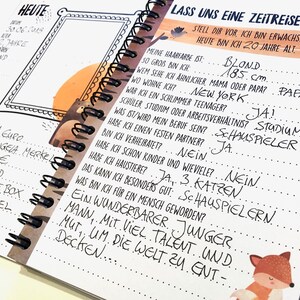 HEUTE
LASS UNS EINE ZEITREISE
STELL DIR VOR ICH BIN ERWACHS
HEUTE BIN ICH 20 JAHRE ALT
MEINE HAARFARBE IST: BLOND
SO GROß BIN ICH: 185 cm
WEM SEHE ICH ÄHNLICHER MAMA ODER PAPA? PAP
WO WOHNE ICH? NEW YORK
WAR ICH EIN SCHLIMMER TEENAGER? JA!
SCHÜLER STUDIUM ODER ARBEITSVERHÄLTNIS? STUDIUM
WAS IST/WIRD MEIN BERUF SEIN? SCHAUSPIELER
HABE ICH EINEN FESTEN PARTNER? JA
BIN ICH VERHEIRATET? NEIN
HABE ICH SCHON KINDER UND WIEVIELE? NEIN
HABE ICH HAUSTIERE? JA, 3 KATZEN
DAS KANN ICH BESONDERS GUT: SCHAUSPIELERN
WAS BIN ICH FÜR EIN MENSCH GEWORDEN?
EIN WUNDERBARER JUNGER
MANN, MIT VIEL TALENT UND
MUT, UM DIE WELT ZU ENT-
DECKEN
EURO